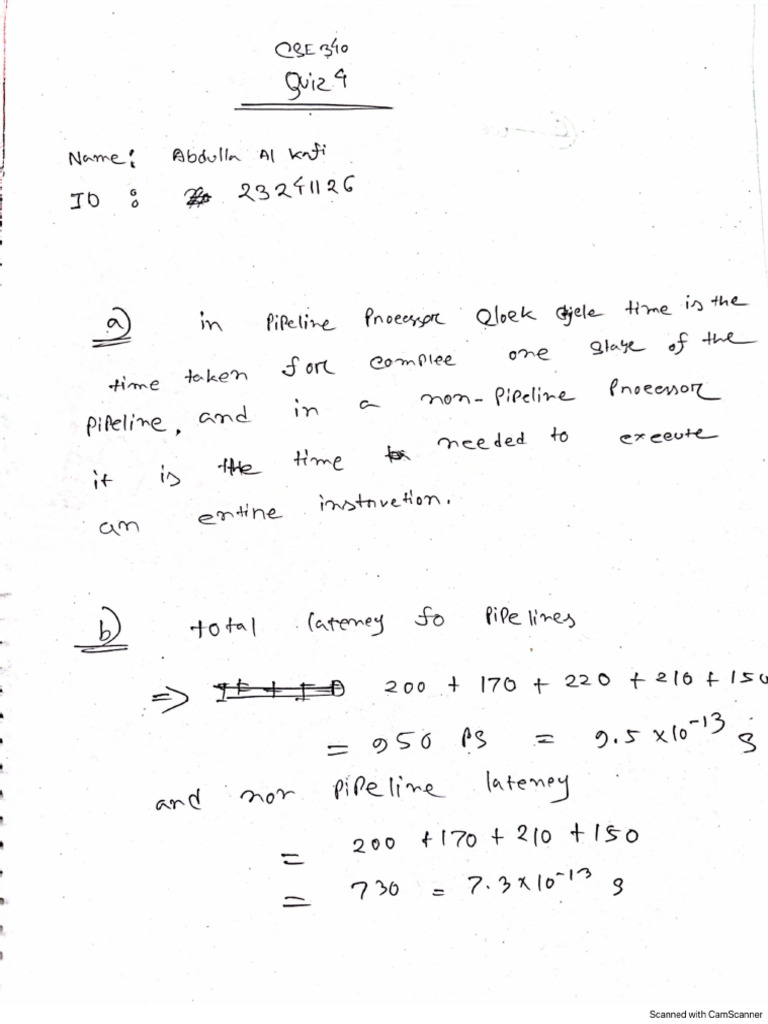 CSE 340
Quiz 4
Name: Abdulla Al Kafi
ID : 23241126
a) in Pipeline Processor Clock Cycle time is the
time taken for complee one stage of the
Pipeline, and in a non-Pipeline Processor
it is the time needed to execute
an entire instruction.
b) total latency fo Pipelines
=> 200 + 170 + 220 + 210 + 150
= 950 PS = 9.5 x 10^-13 s
and non Pipeline latency
= 200 + 170 + 210 + 150
= 730 = 7.3 x 10^-13 s
Scanned with CamScanner